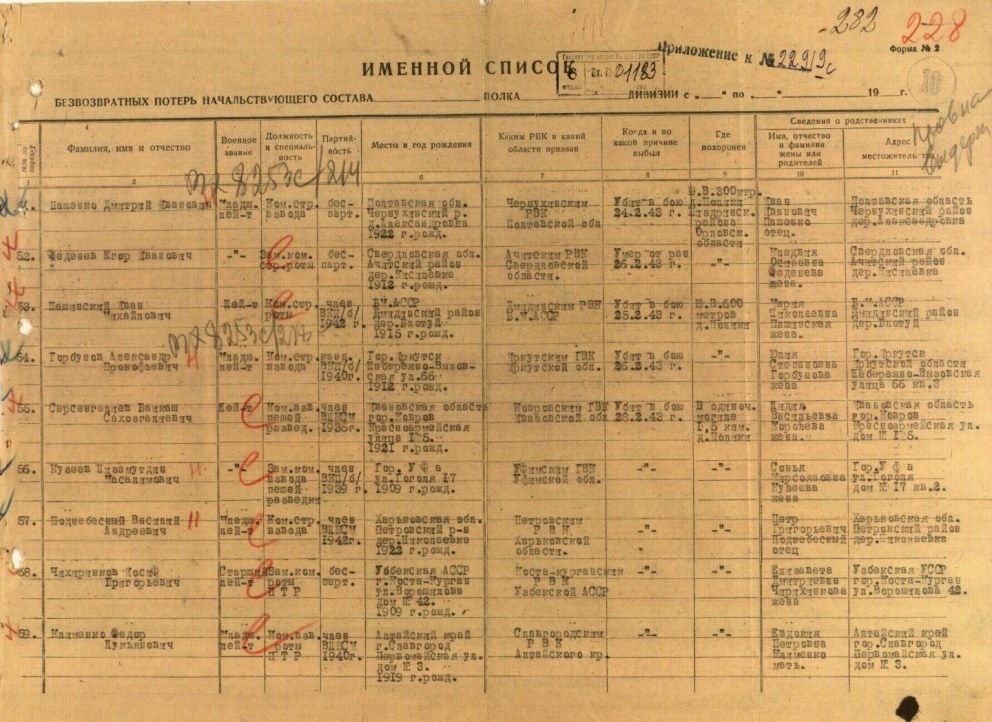 282
228
Приложение к № 22919с
Форма № 2
01183
ИМЕННОЙ СПИСОК
БЕЗВОЗВРАТНЫХ ПОТЕРЬ НАЧАЛЬСТВУЮЩЕГО СОСТАВА ПОЛКА ДИВИЗИИ с „ “ по „ “ 19 г.
№№ по порядку
Фамилия, имя и отчество
Военное звание
Должность и специальность
Партийность
Место и год рождения
Каким РВК и какой области призван
Когда и по какой причине выбыл
Где похоронен
Сведения о родственниках
Имя, отчество и фамилия жены или родителей
Адрес местожительства
2 6 7 8 9 10 11
вх 8253с/214
Пащенко Дмитрий Иванович
Младш. лей-т
Ком.стр. взвода
бес-парт.
Полтавская обл.
Чернухинский р.
д.Александровка
1922 г.рожд.
Чернухинским
РВК
Полтавской обл
Убит в бою
24.2.43 г.
Ю.В.300мтр.
Орловск.
области
Иван
Иванович
Пащенко
отец.
Полтавская область
Чернухинский район
дер.Александровка
52. Феденев Егор Иванович
-"-
Зам.ком.
бес-парт.
Свердловская обл.
Ачитский район
1912 г.рожд.
Ачитским РВК
Свердловской
области.
Умер от ран
26.2.43 г.
-"-
Феденева
жена.
Свердловская обл.
Ачитский район
53. Пашинский Иван
Михайлович
Лей-т
Ком.стр.
роты
член
ВКП/б/
1942 г.
Б.М.АССР
район
1915 г.рожд.
РВК
Б.М.АССР
Убит в бою
25.2.43 г.
Ю.В.600
метров
Мария
Николаевна
Пашинская
жена.
Б.М.АССР
район
54. Горбунов Александр
Прокофьевич
Младш.
лей-т
Ком.стр.
взвода
канд.
ВКП/б/
1940г.
Гор.Иркутск
ская ул.66
1912 г.рожд.
Иркутским ГВК
Иркутской обл.
Убит в бою
26.2.43 г.
-"-
Юлия
Степановна
Горбунова
жена
Гор.Иркутск
Иркутской области
улица 66 кв.3
55.
Лей-т
Ком.взв.
пешей
развед.
член
ВЛКСМ
1938г.
Ивановская область
гор.Ковров
Красноармейская
улица
1921 г.рожд.
Ковровским ГВК
Ивановской обл
Убит в бою
26.2.43 г.
В одиноч.
могиле
Лидия
Васильевна
Королева
жена.
Ивановская обл.
гор.Ковров
Красноармейская ул.
56. Кузеев Низамутдин
-"-
Зам.ком.
взвода
пешей
разведки
член
ВКП/б/
1939 г.
Гор. У ф а
ул.Гоголя 17
1909 г.рожд.
Уфимским ГВК
Уфимской обл.
-"-
-"-
Кузеева
жена
Гор.У ф а
ул.Гоголя
дом № 17 кв.2.
57. Поднебесный Василий
Андреевич
Младш.
лей-т
Ком.стр.
взвода
член
ВЛКСМ
1942г.
Харьковская обл.
Петровский р-н
дер.Николаевка
1922 г.рожд.
Петровским
Р В К
Харьковской
области.
-"-
-"-
Петр
Григорьевич
Поднебесный
отец
Харьковская обл.
Петровский район
дер.Николаевка
58. Чихирников Иосиф
Григорьевич
Старший
лей-т
Зам.ком.
роты
П Т Р
бес-
парт.
Узбекская АССР
г.Коста-Курган
ул.Ворошилова
дом № 42.
1909 г.рожд.
Коста-кургавским
Р В К
Узбекской АССР
-"-
-"-
Елизавета
Дмитриевна
жена
Узбекская УССР
гор.Коста-Курган
ул.Ворошилова 42.
59. Клименко Федор
Лукьянович
Младш.
лей-т
Ком.взв.
роты
П Т Р
член
ВЛКСМ
1940г.
Алтайский край
г.Славгород
Первомайская ул.
дом № 3.
1919 г.рожд.
Славгородским
Р В К
Алтайского кр.
-"-
-"-
Евдокия
Петровна
Клименко
мать.
Алтайский край
гор.Славгород
Первомайская ул.
дом № 3.